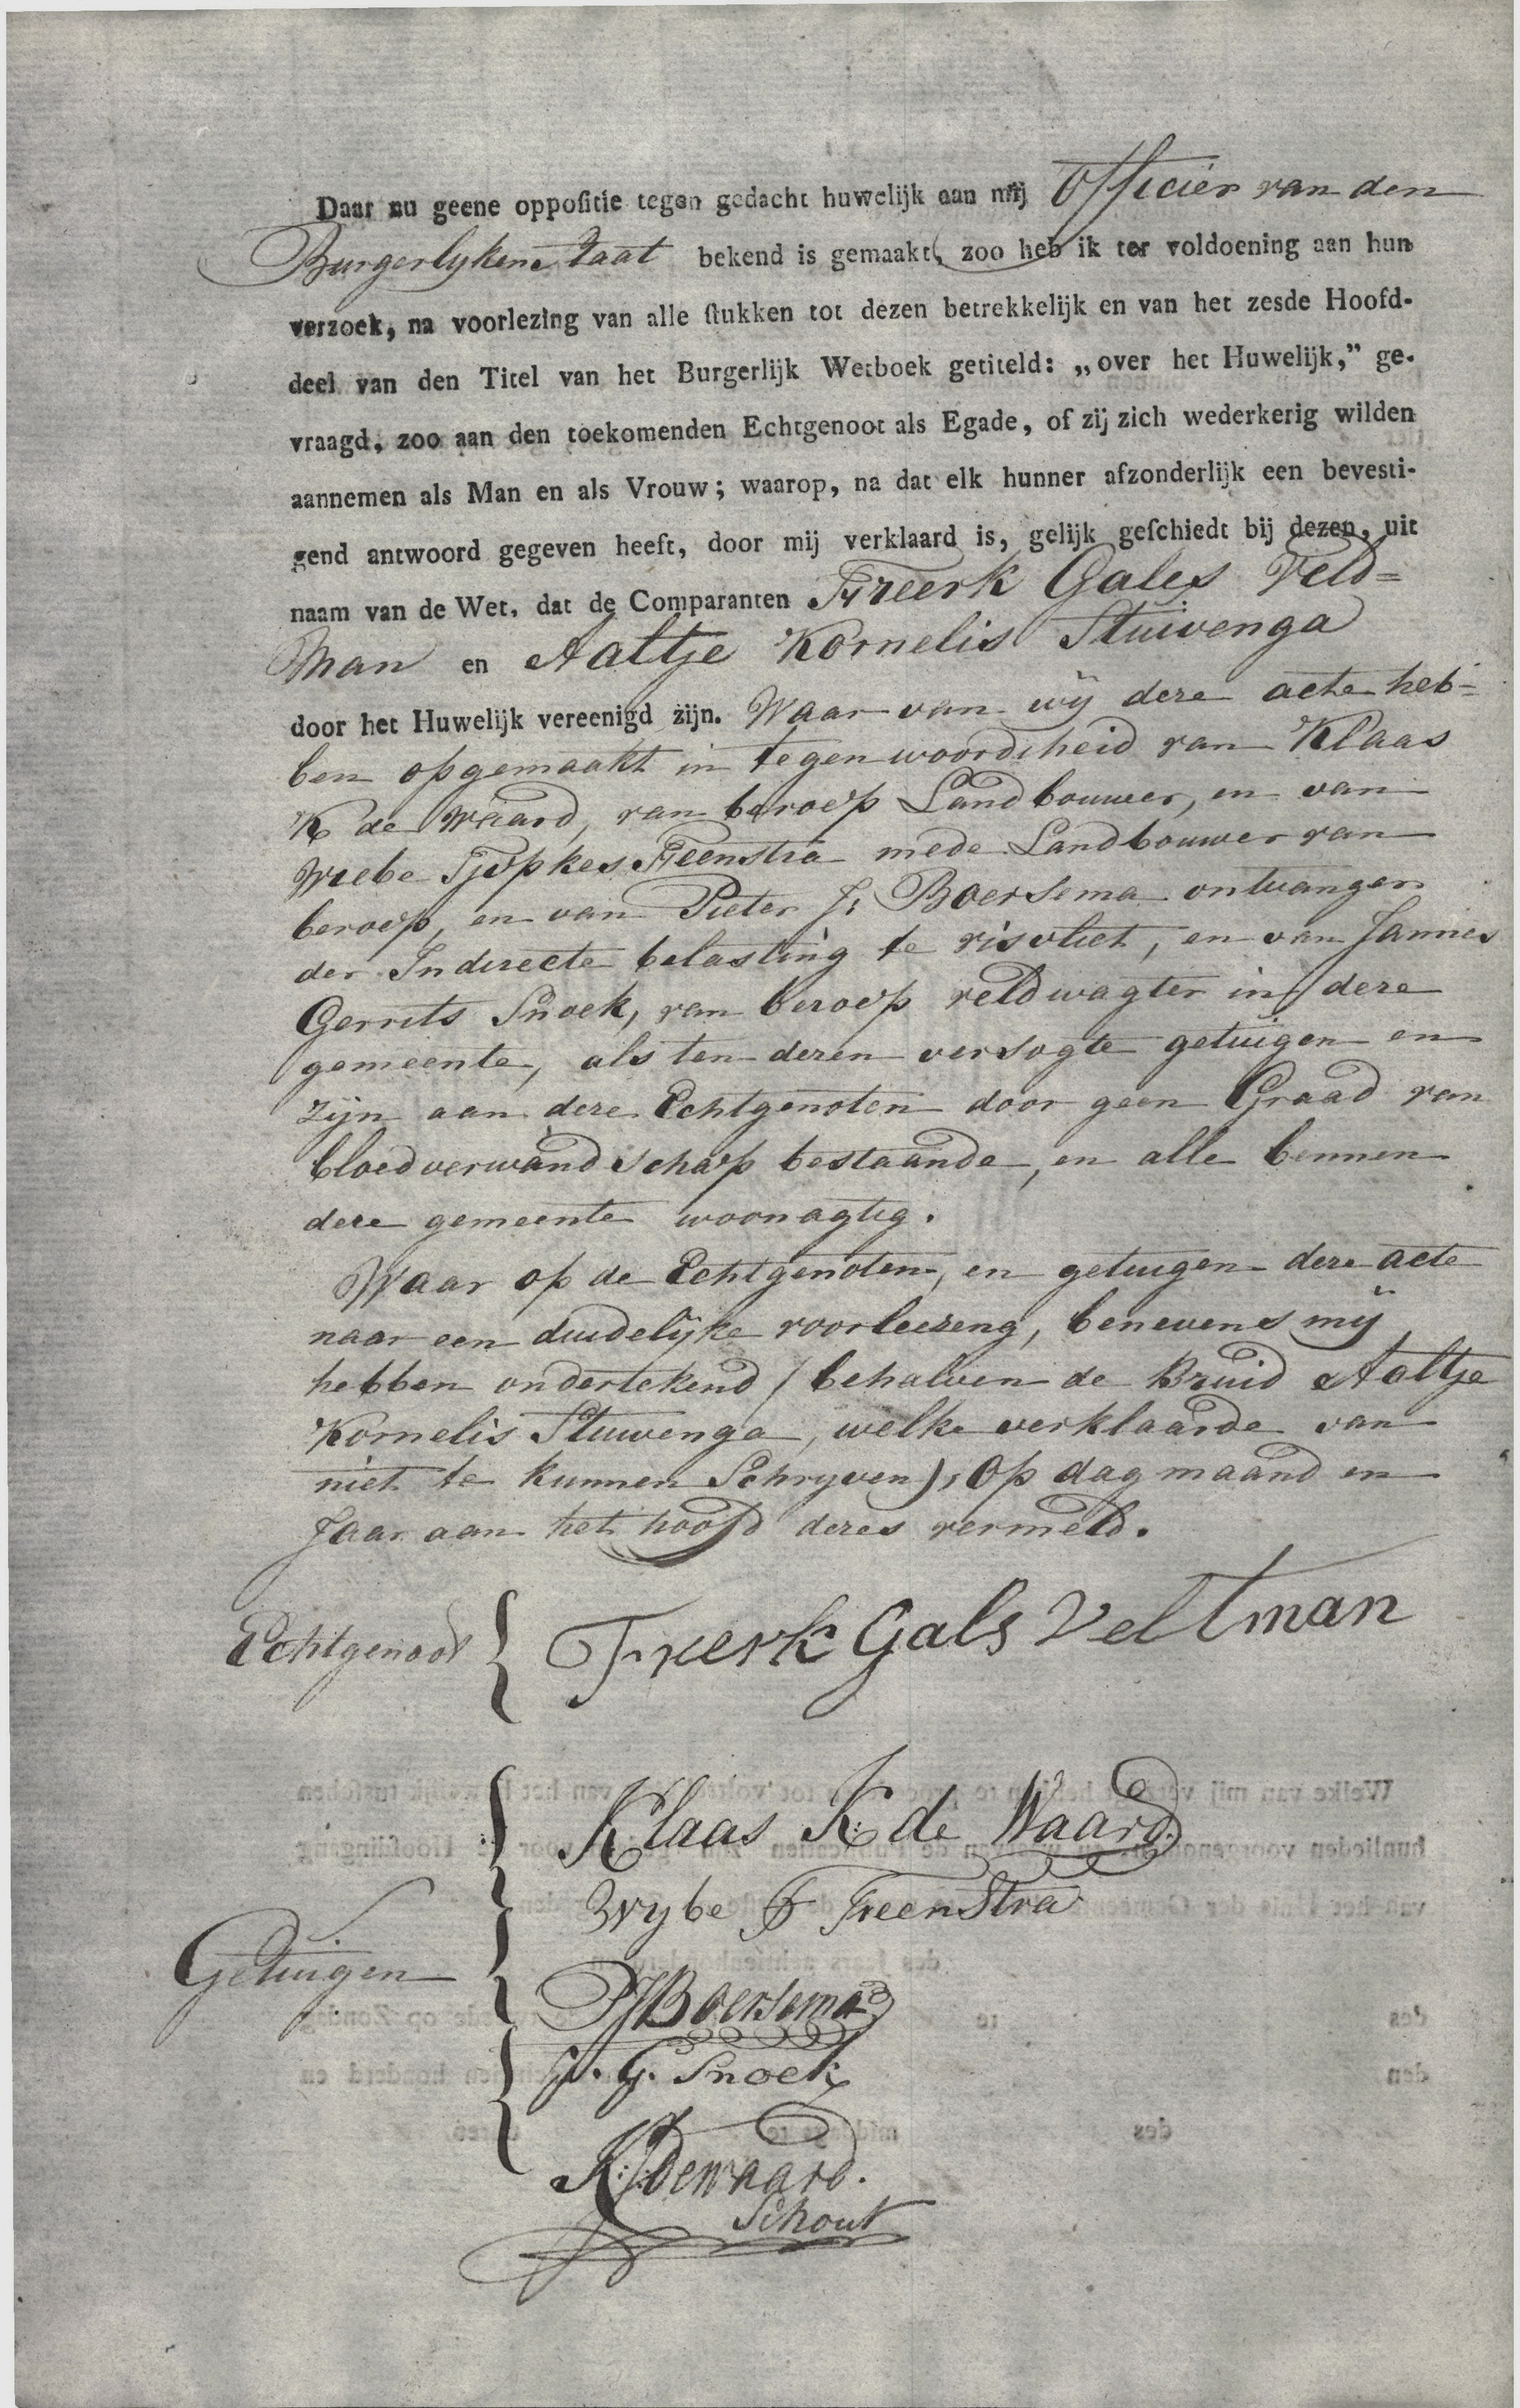 Daar nu geene oppositie tegen gedacht huwelijk aan mij Officier van den
Burgerlyken Staat bekend is gemaakt, zoo heb ik ter voldoening aan hun
verzoek, na voorlezing van alle stukken tot dezen betrekkelijk en van het zesde Hoofd-
deel van den Titel van het Burgerlijk Wetboek getiteld: „over het Huwelijk,” ge-
vraagd, zoo aan den toekomenden Echtgenoot als Egade, of zij zich wederkerig wilden
aannemen als Man en als Vrouw; waarop, na dat elk hunner afzonderlijk een bevesti-
gend antwoord gegeven heeft, door mij verklaard is, gelijk geschiedt bij dezen, uit
naam van de Wet, dat de Comparanten Freerk Gales Veld=
man en Aaltje Kornelis Stuivenga
door het Huwelijk vereenigd zijn. Waar van wij deze acte heb=
ben opgemaakt in tegenwoordiheid van Klaas
K de Waard, van beroep Landbouwer, en van
Wiebe Tjepkes Feenstra mede Landbouwer van
beroep, en van Pieter J: Boersema ontvanger
der Indirecte belasting te visvliet, en van Jannes
Gerrits Snoek, van beroep veldwagter in deze
gemeente, als ten dezen versogte getuigen en
zijn aan deze Echtgenoten door geen Graad van
bloedverwandschap bestaande, en alle bennen
deze gemeente woonagtig.
Waar op de Echtgenoten, en getuigen deze acte
naar een duidelijke voorleezeng, benevens mij
hebben ondertekend / behalven de Bruid Aaltje
Kornelis Stuivenga, welke verklaarde van
niet te kunnen Schryven), Op dag maand en
Jaar aan het hoofd dezes vermeld.
Echtgenoot { Frerk Gals Veltman
Klaas K: de Waard.
Wybe T Feenstra
Getuigen
PJBoersema
J. G. Snoek
K:J:dewaard.
Schout